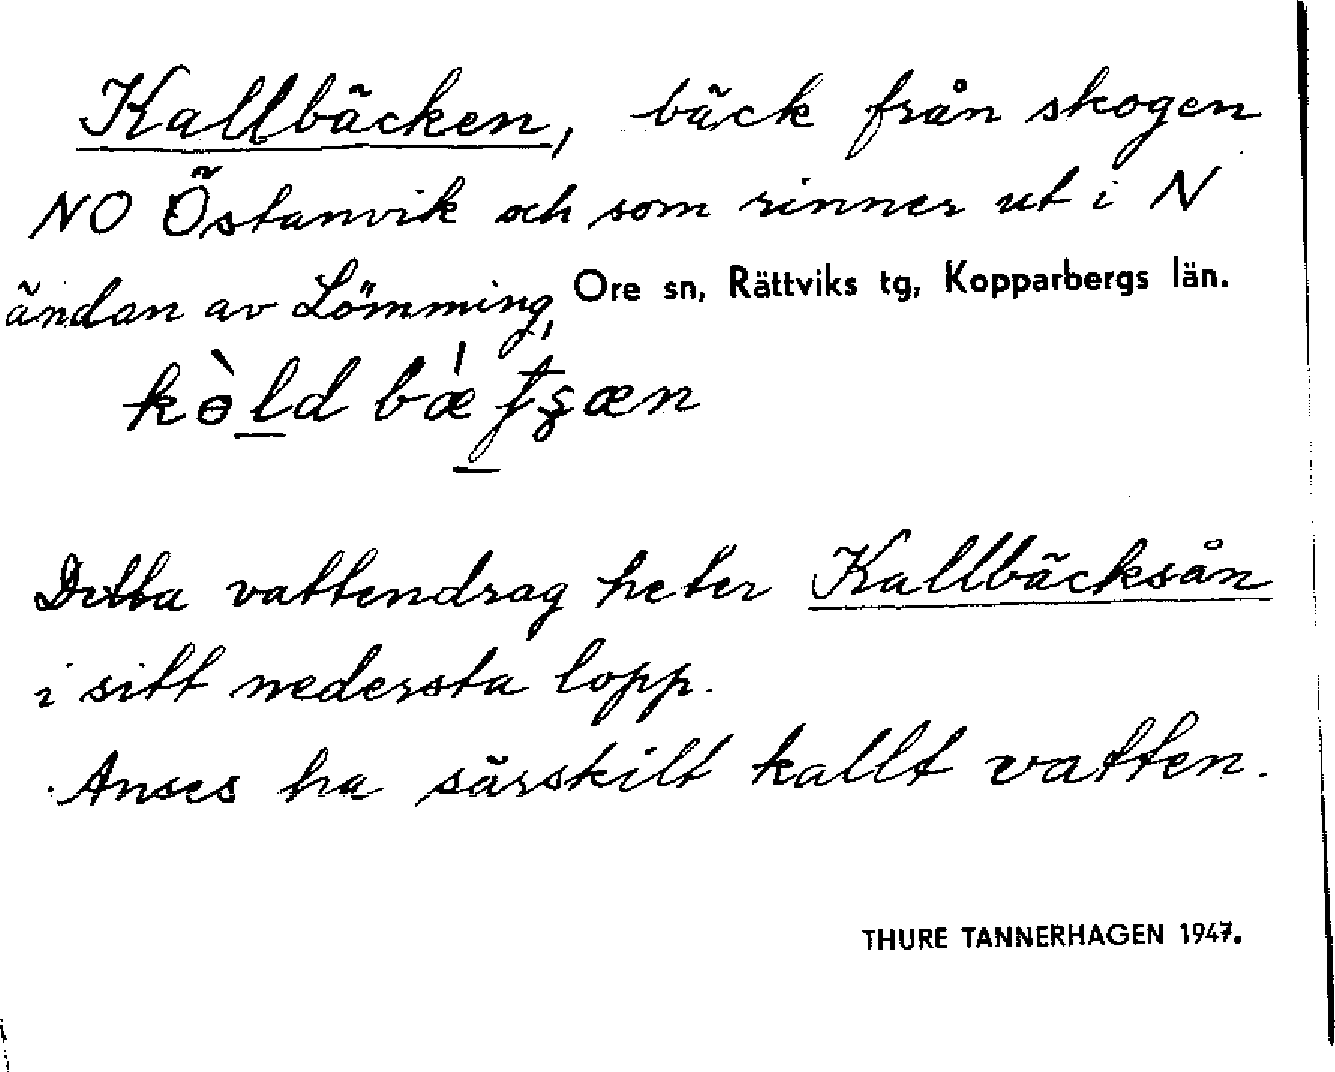 Kallbäcken, bäck från skogen
NO Östanvik och som rinner ut i N
ändan av Lömming, Ore sn, Rättviks tg, Kopparbergs län.
Detta vattendrag heter Kallbäcksån
i sitt nedersta lopp.
Anses ha särskilt kallt vatten.
THURE TANNERHAGEN 1947.